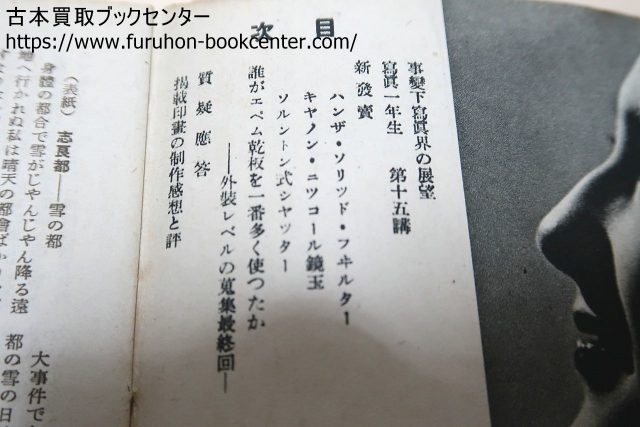 古本買取ブックセンター
https://www.furuhon-bookcenter.com/
目次
事變下寫眞界の展望
寫眞一年生 第十五講
新發賣
ハンザ・ソリッド・フヰルター
キヤノン・ニツコール鏡玉
ソルントン式シヤッター
誰がエペム乾板を一番多く使つたか
――外裝レベルの蒐集最終回――
質疑應答
揭載印畫の制作感想と評
（表紙） 志良都――雪の都
身體の都合で雪がじやんじやん降る遠
地へ行かれぬ私は晴天の都會ばかり
大事件で
都の雪の日